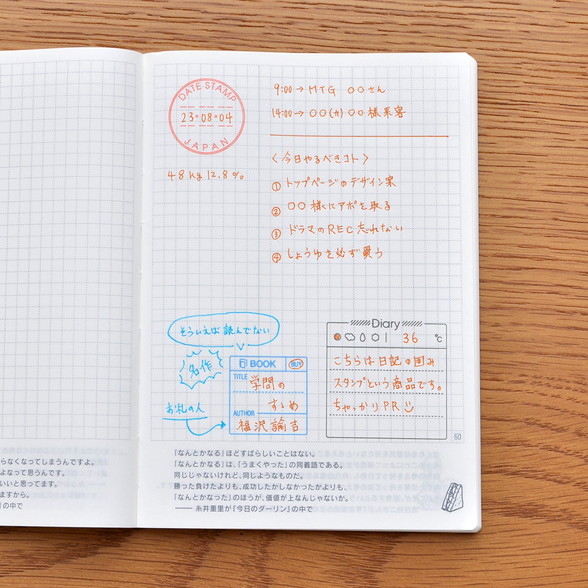 DATE STAMP
23・08・04
JAPAN
48kg 12.8%
9:00→MTG 〇〇さん
14:00→〇〇(カ)〇〇様来客
〈今日やるべきコト〉
①トップページのデザイン案
②〇〇様にアポを取る
③ドラマのREC忘れない
④しょうゆを必ず買う
そういえば読んでない
名作
お札の人
BOOK
BUY
TITLE
学問の
すゝめ
AUTHOR
福沢諭吉
Diary
36℃
こちらは日記の囲み
スタンプという商品です。
ちゃっかりPR
60
「なんとかなる」ほどすばらしいことはない。
「なんとかなる」は、「うまくやった」の同義語である。
同じじゃないけれど、同じようなものだ。
勝った負けたよりも、成功したかしなかったかよりも、
「なんとかなった」のほうが、価値が上なんじゃないか。
―― 糸井重里が『今日のダーリン』の中で
らなくなってしまうんですよ。
よなって思うんです。
いいと思ってます。
ますから。
』の中で